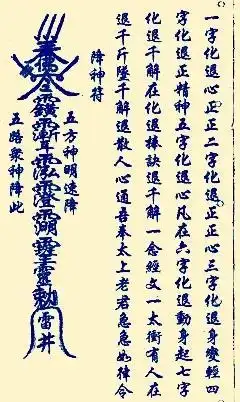 一字化退心正正二字化退正正心三字化退身變輕四
字化退正精神五字化退心凡在六字化退動身起七字
化退千解在化退捧訣退千解一念經文一太衡有人在
退千斤墜千解退散人心通吾奉太上老君急急如律令
降神符
五方神明速降
五路眾神降此
勅
雷井